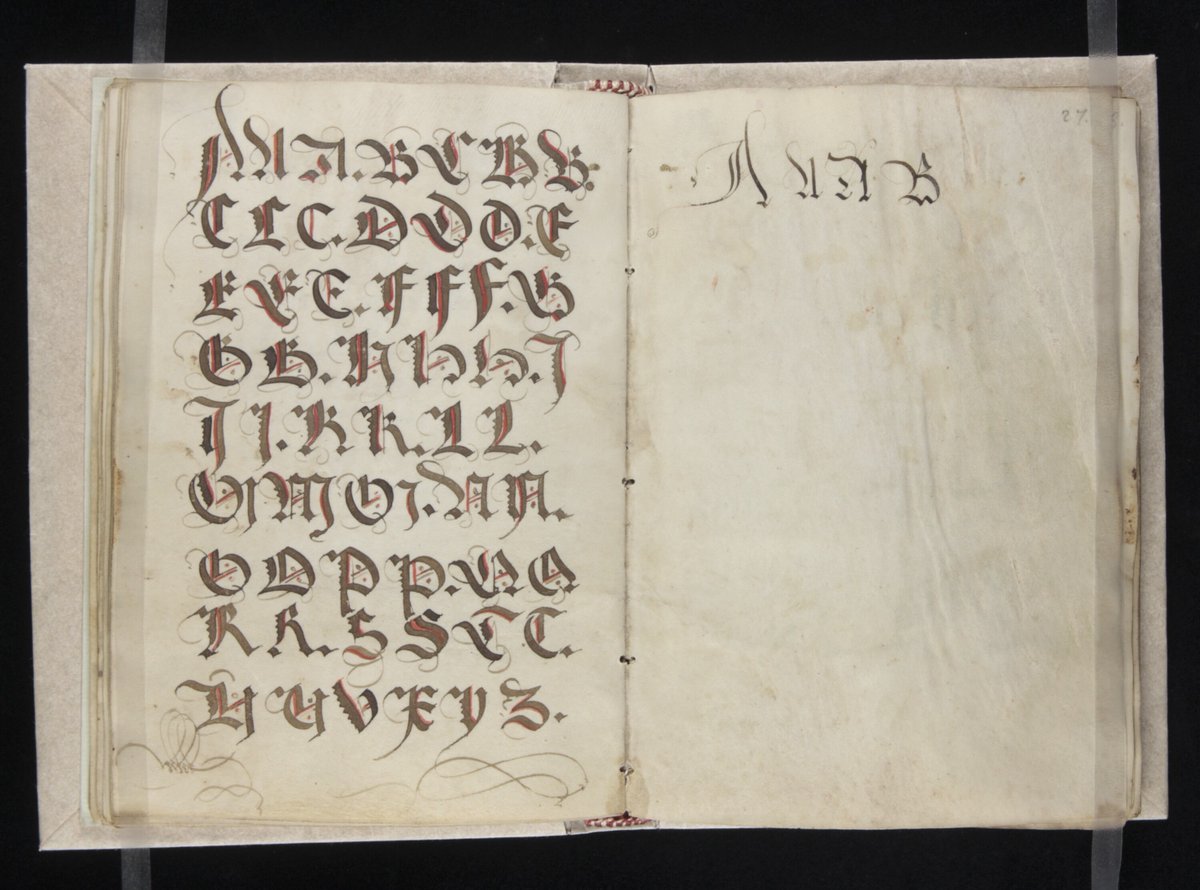 A A A. B C B B.
C C C. D D D. E
E E E. F F F. G
G G. H H H. J
J J. K K. L L.
M M M. N N.
O O P P. Q Q
R R. S S T T.
U U V X Y Z.
A A A B
27.